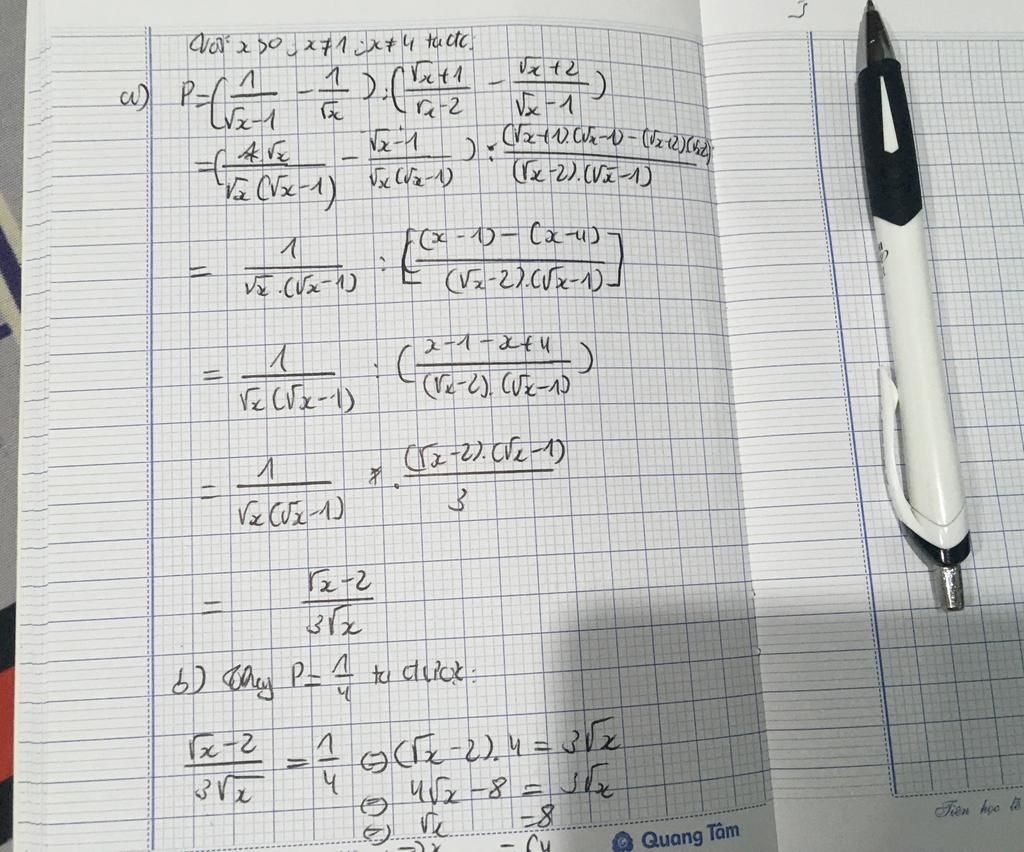 Với x>0; x≠1; x≠4 ta đc:
a) P=(1/(√x-1) - 1/√x):((√x+1)/(√x-2) - (√x+2)/(√x-1))
=(1.√x/(√x(√x-1)) - (√x-1)/(√x(√x-1))) : ((√x+1).(√x-1)-(√x+2)(√x-2))/((√x-2).(√x-1))
= 1/(√x.(√x-1)) : [((x-1)-(x-4))/((√x-2).(√x-1))]
= 1/(√x(√x-1)) : ((x-1-x+4)/((√x-2).(√x-1)))
= 1/(√x(√x-1)) . ((√x-2).(√x-1))/3
= (√x-2)/(3√x)
b) Thay P=1/4 ta được:
(√x-2)/(3√x) = 1/4 ⇔ (√x-2).4 = 3√x
⇔ 4√x-8 = 3√x
⇔ √x =8
Tiên học lễ
Quang Tâm